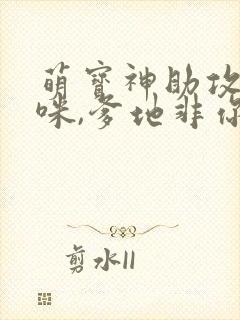 萌宝神助攻
咪,爹地非你
剪水II